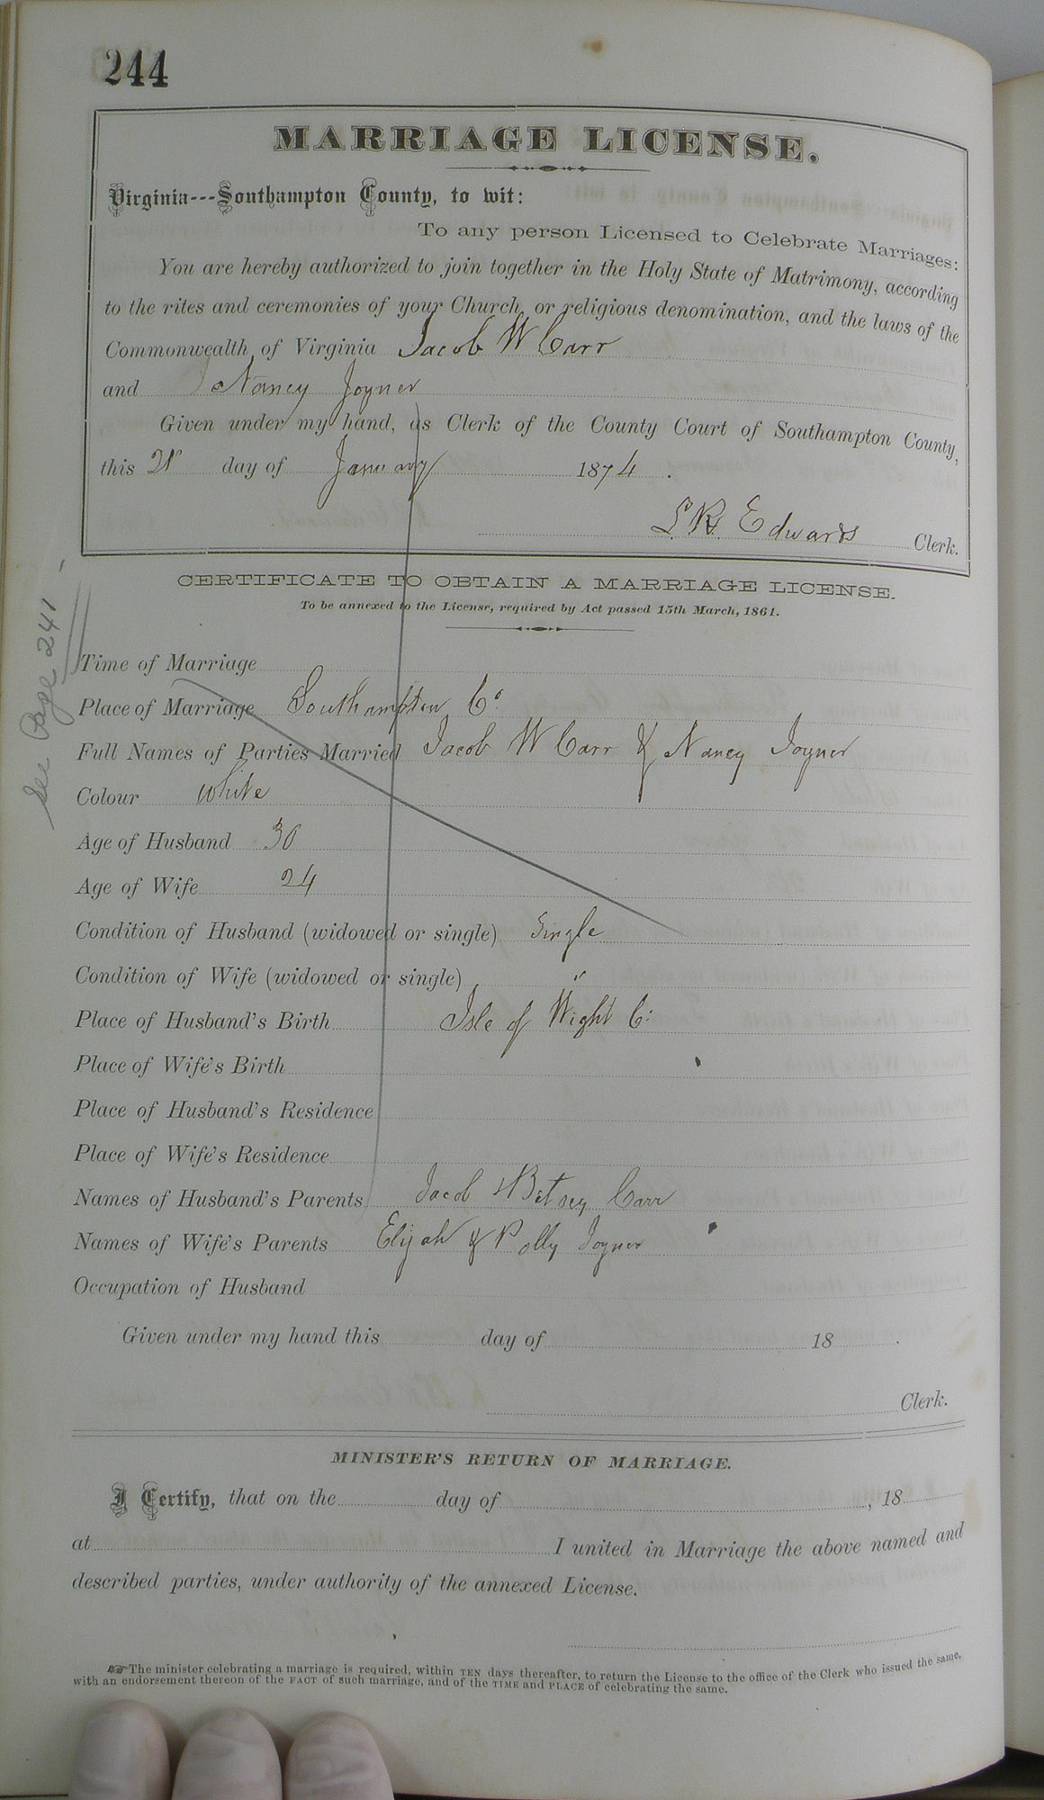 244
MARRIAGE LICENSE.
Virginia---Southampton County, to wit:
To any person Licensed to Celebrate Marriages:
You are hereby authorized to join together in the Holy State of Matrimony, according
to the rites and ceremonies of your Church, or religious denomination, and the laws of the
Commonwealth of Virginia Jacob W Carr
and Nancy Joyner
Given under my hand, as Clerk of the County Court of Southampton County,
this day of January 1874.
L R Edwards Clerk.
CERTIFICATE TO OBTAIN A MARRIAGE LICENSE.
To be annexed to the License, required by Act passed 15th March, 1861.
See Page 241
Time of Marriage
Place of Marriage Southampton Co
Full Names of Parties Married Jacob W Carr & Nancy Joyner
Colour White
Age of Husband 30
Age of Wife 24
Condition of Husband (widowed or single) Single
Condition of Wife (widowed or single) "
Place of Husband's Birth Isle of Wight C:
Place of Wife's Birth
Place of Husband's Residence
Place of Wife's Residence
Names of Husband's Parents Jacob & Betsey Carr
Names of Wife's Parents Elijah & Polly Joyner
Occupation of Husband
Given under my hand this day of 18 .
Clerk.
MINISTER'S RETURN OF MARRIAGE.
I Certify, that on the day of , 18
at I united in Marriage the above named and
described parties, under authority of the annexed License.
☞The minister celebrating a marriage is required, within TEN days thereafter, to return the License to the office of the Clerk who issued the same,
with an endorsement thereon of the FACT of such marriage, and of the TIME and PLACE of celebrating the same.